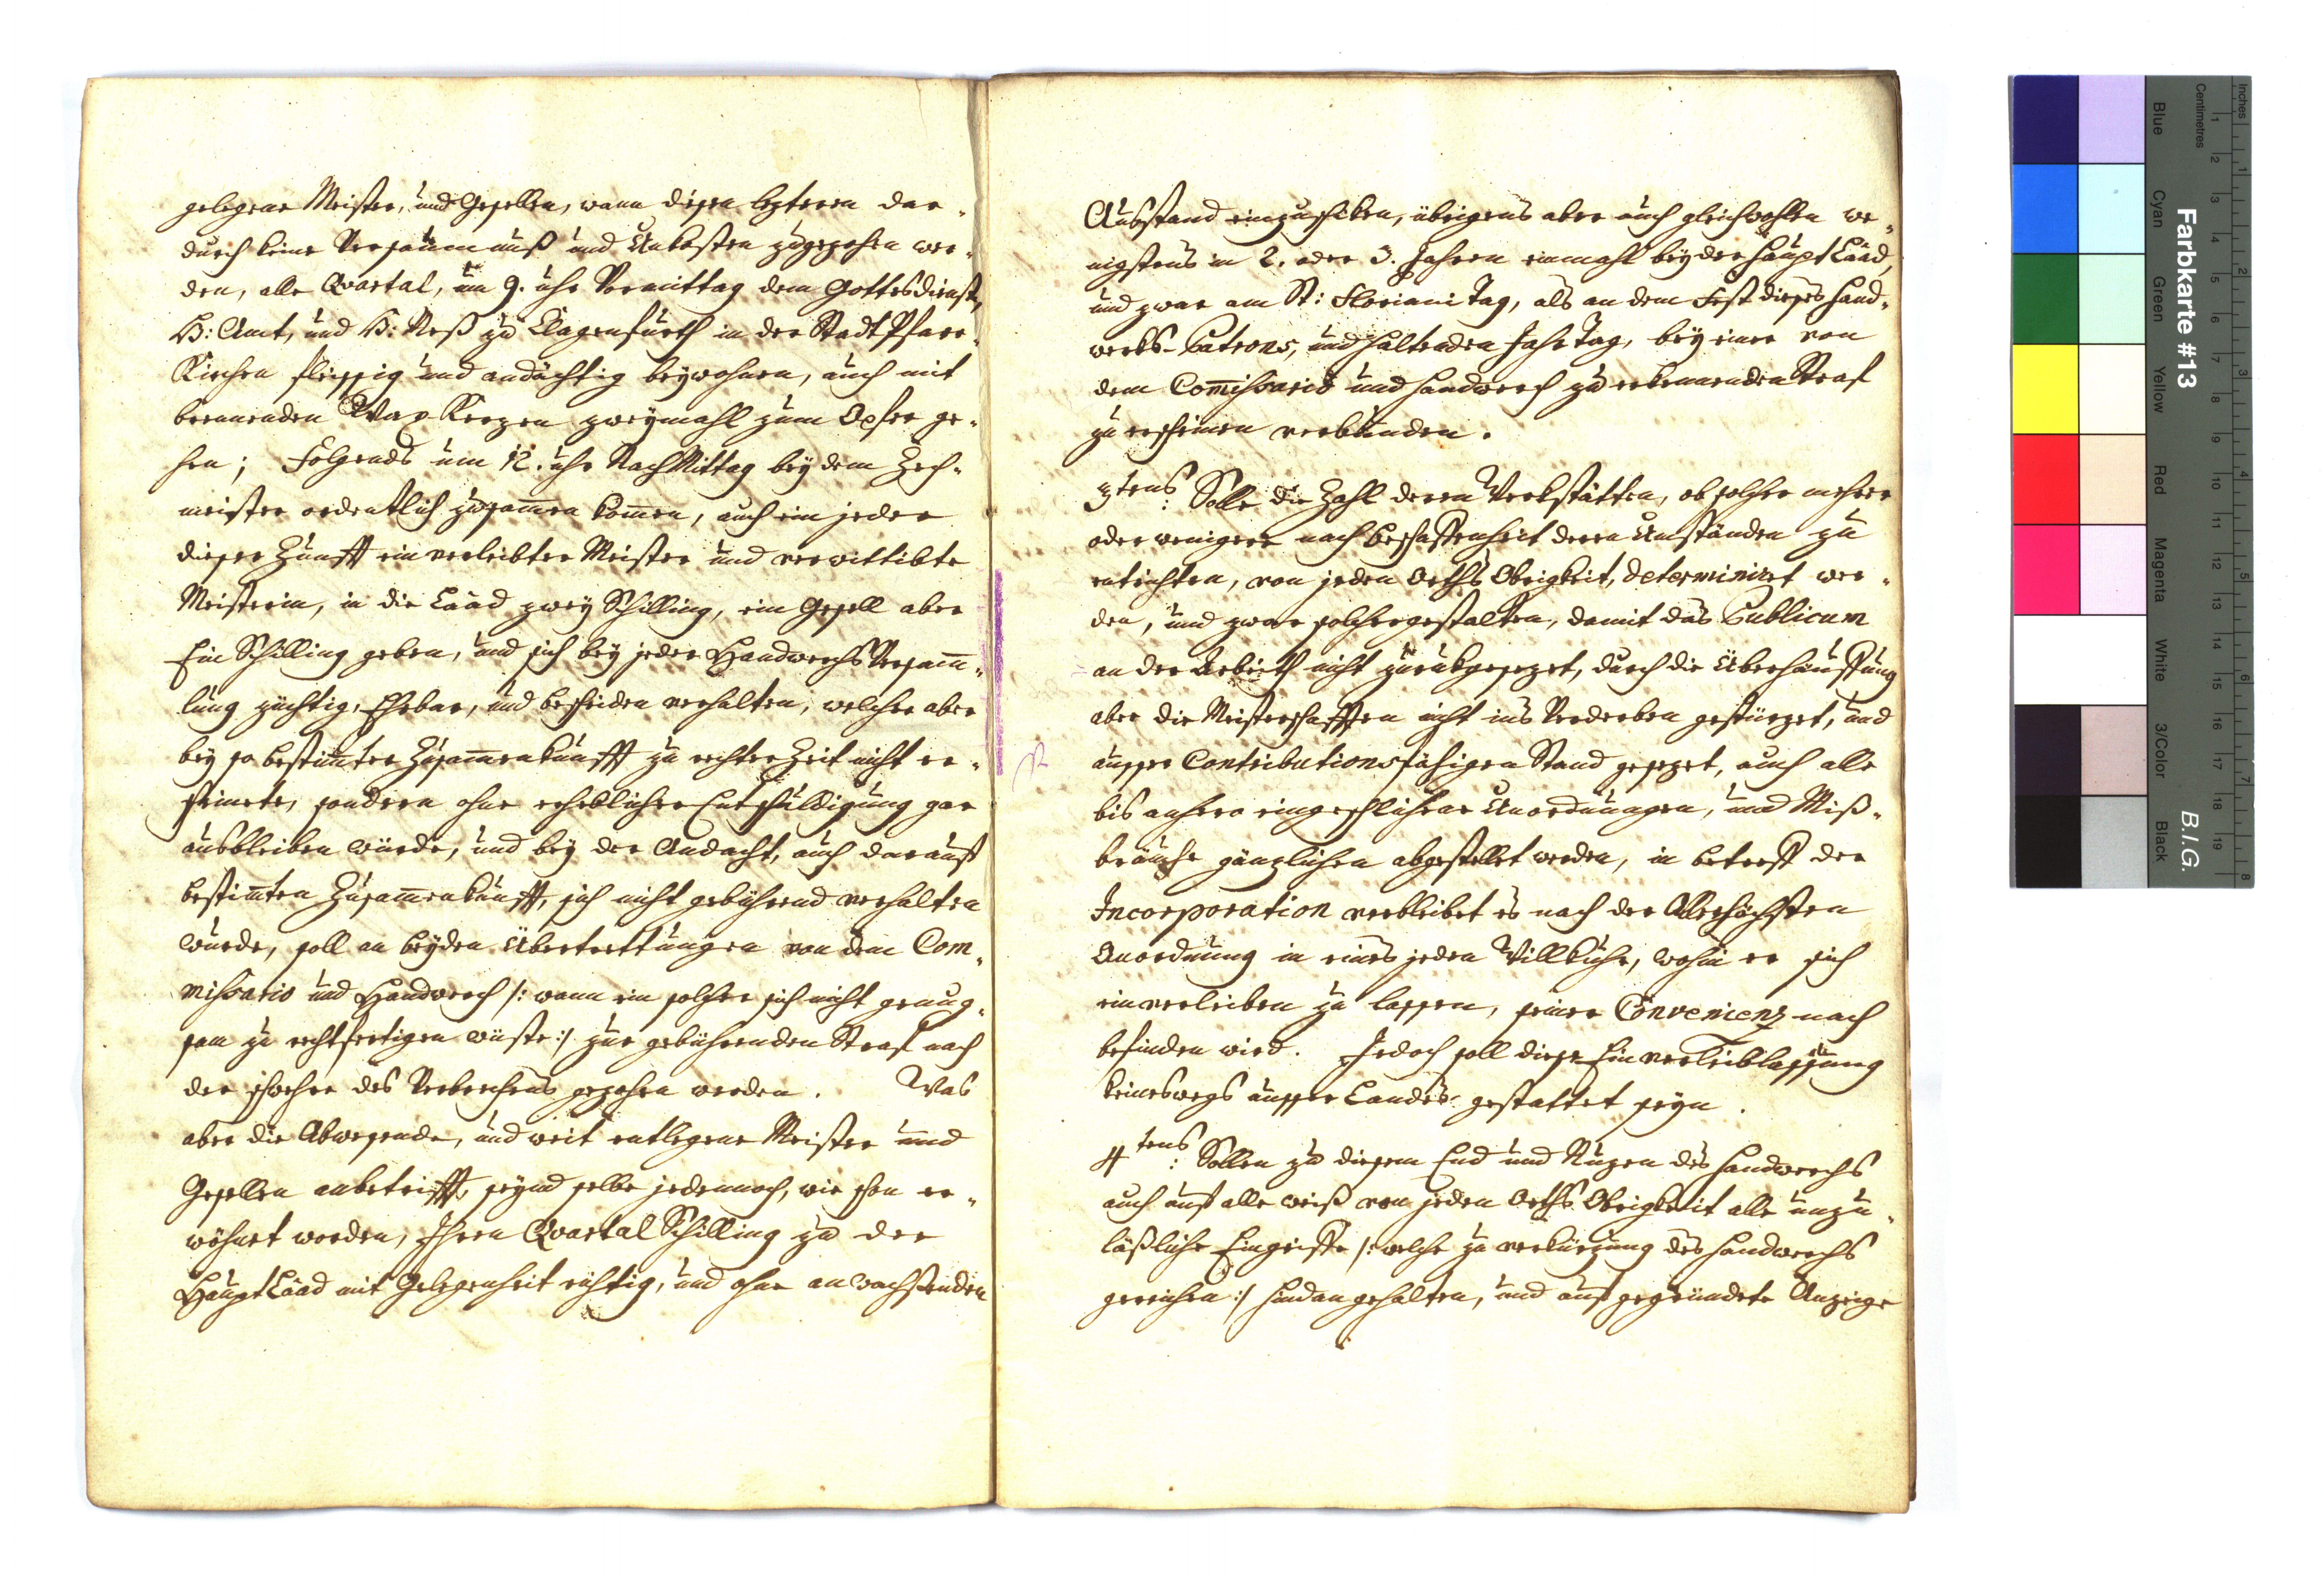 gelegene Meister, und Gesellen, wann diesen lezteren dar-
durch keine Versaumnuß und Unkosten zugezohen wer-
den, alle Quartal, um 9. uhr Vormittag dem Gottesdienst,
H: Amt, und H: Meß zu Klagenfurth in der Stadt Pfarr-
Kirchen fleissig und andächtig beywohnen, auch mit
brennenden Wax Kerzen zweymahl zum Opfer ge-
hen; Folgends um 12. uhr Nach Mittag bey dem Zech-
meister ordentlich zusam̄en kom̄en, auch ein jeder
dieser Zunfft ein verleibter Meister und verwittibte
Meisterin, in die Laad zwey Schilling, ein Gesell aber
Ein Schilling geben, und sich bey jeder Handwerchs Versam̄-
lung züchtig, Ehrbar, und bescheiden verhalten, welcher aber
bey so bestim̄ter Zusam̄enkunfft zu rechter Zeit nicht er-
scheinete, sondern ohne erheblicher Entschuldigung gar
ausbleiben wurde, und bey der Andacht, auch darauf
bestim̄ten Zusam̄enkunfft, sich nicht gebührend verhalten
wurde, soll an beyden Übertrettungen von dem Com-
missario und Handwerch /: wann ein solcher sich nicht genug-
sam zu rechtfertigen wuste :/ zur gebührenden Straf nach
der schwehre des Verbrechens gezohen werden. Was
aber die Abwesende, und weit entlegene Meister und
Gesellen anbetrifft, seynd selbe jedennoch, wie schon er-
wöhnet worden, Ihren Quartal Schilling zu der
Haupt Laad mit Gelegenheit richtig, und ohne anwachsenden
Ausstand einzuschiken, übrigens aber auch gleichwohlen we-
nigstens in 2. oder 3. Jahren einmahl bey der Haupt Laad,
und zwar am St: Floriani Tag, als an dem Fest dieses Hand-
werks-Patrons, und haltenden Jahr Tag, bey einer von
dem Com̄issario und Handwerch zu erkennenden Straf
zu erscheinen verbunden.
3tens: Solle die Zahl deren Werkstätten, ob solcher mehrer
oder weniger nach Beschaffenheit deren Umständen zu
entrichten, von jeden Orths Obrigkeit, determiniret wer-
den, und zwar solchergestalten, damit das Publicum
an der Arbeith nicht zurukgesezet, durch die Überhäuffung
aber die Meisterschafften nicht ins Verderben gestürzet, und
ausser Contributionsfähigen Stand gesezet, auch alle
bis anhero eingeschlichene Unordnungen, und Miß-
bräuche gänzlichen abgestellet werden, in betreff der
Incorporation verbleibet es nach der Allerhöchsten
Anordnung in eines jeden Willkuhr, wohin er sich
einverleiben zu lassen, seiner Convenienz nach
befinden wird. Jedoch soll diese Einverleiblassung
keineswegs ausser Landes gestattet seyn.
4tens: Sollen zu diesem End und Nuzen des Handwerchs
auch auf alle weiß von jeden Orths Obrigkeit alle unzu-
läßliche Eingriffe /: welche zu verkürzung des Handwerchs
gereichen :/ hindan gehalten, und auf gegründete Anzeige
Farbkarte #13
B.I.G.
Inches
Centimetres
1 2 3 4 5 6 7 8
1 2 3 4 5 6 7 8 9 10 11 12 13 14 15 16 17 18 19
Blue
Cyan
Green
Yellow
Red
Magenta
White
3/Color
Black